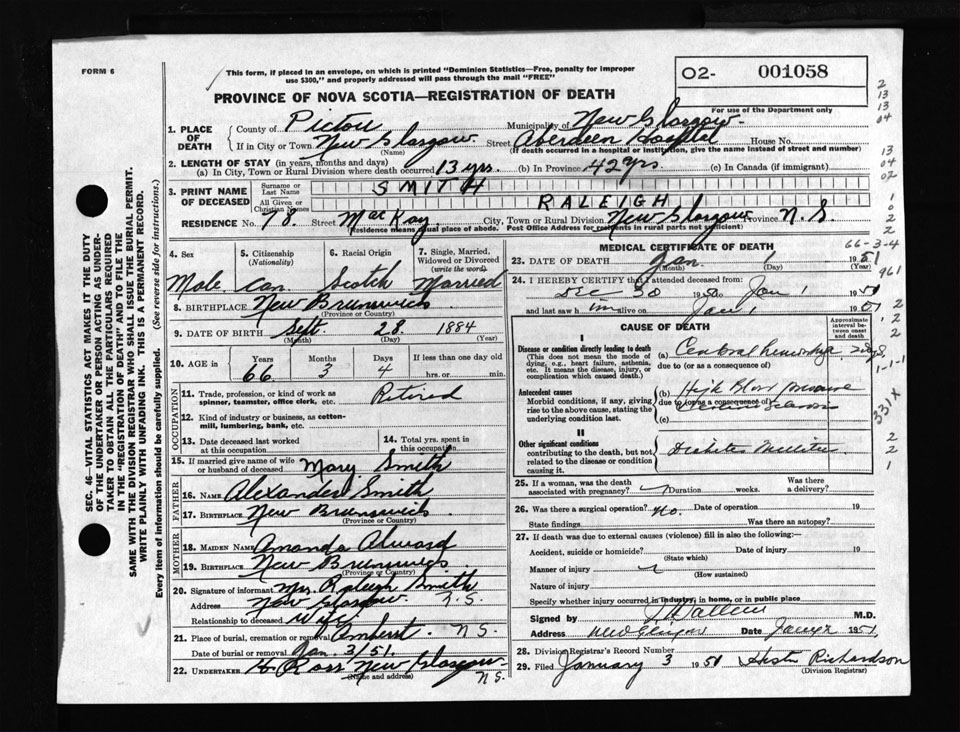 FORM 6
This form, if placed in an envelope, on which is printed "Dominion Statistics—Free, penalty for improper
use $300," and properly addressed will pass through the mail "FREE"
O2- 001058
PROVINCE OF NOVA SCOTIA—REGISTRATION OF DEATH
For use of the Department only
1. PLACE OF DEATH
County of Pictou Municipality of New Glasgow
If in City or Town New Glasgow Street Aberdeen Hospital House No.
(Name) (If death occurred in a hospital or institution, give the name instead of street and number)
2. LENGTH OF STAY (in years, months and days)
(a) In City, Town or Rural Division where death occurred 13 yrs. (b) In Province 42 yrs (c) In Canada (if immigrant)
3. PRINT NAME OF DECEASED
Surname or Last Name SMITH
All Given or Christian Names RALEIGH
RESIDENCE No. 78 Street MacKay City, Town or Rural Division New Glasgow Province N.S.
Residence means usual place of abode. Post Office Address for residents in rural parts not sufficient)
4. Sex
Male
5. Citizenship
(Nationality)
Can.
6. Racial Origin
Scotch
7. Single, Married, Widowed or Divorced
(write the word)
Married
8. BIRTHPLACE New Brunswick
(Province or Country)
9. DATE OF BIRTH Sept. 28 1884
(Month) (Day) (Year)
10. AGE in
Years Months Days If less than one day old
66 3 4 hrs. or min.
OCCUPATION
11. Trade, profession, or kind of work as
spinner, teamster, office clerk, etc. Retired
12. Kind of industry or business, as cotton-
mill, lumbering, bank, etc.
13. Date deceased last worked
at this occupation
14. Total yrs. spent in
this occupation
15. If married give name of wife
or husband of deceased Mary Smith
FATHER
16. NAME Alexander Smith
17. BIRTHPLACE New Brunswick
(Province or Country)
MOTHER
18. MAIDEN NAME Amanda Alward
19. BIRTHPLACE New Brunswick
(Province or Country)
20. Signature of informant Mrs. Raleigh Smith
Address New Glasgow N.S.
Relationship to deceased Wife
21. Place of burial, cremation or removal Amherst. N.S.
Date of burial or removal Jan. 3/51.
22. UNDERTAKER Ross New Glasgow
(Name and address) N.S.
MEDICAL CERTIFICATE OF DEATH
23. DATE OF DEATH Jan. 1 1951
(Month) (Day) (Year)
24. I HEREBY CERTIFY that I attended deceased from:
Dec 30 1950 Jan 1 1951
and last saw him alive on Jan 1 1951
CAUSE OF DEATH
Approximate interval between onset and death
I
Disease or condition directly leading to death
(This does not mean the mode of
dying, e.g., heart failure, asthenia,
etc. It means the disease, injury, or
complication which caused death.)
(a) Cerebral Hemorrhage 2 days
due to (or as a consequence of)
Antecedent causes
Morbid conditions, if any, giving
rise to the above cause, stating the
underlying condition last.
(b) High Blood Pressure
due to (or as a consequence of)
(c)
II
Other significant conditions
contributing to the death, but not
related to the disease or condition
causing it.
Diabetes Mellitus
25. If a woman, was the death
associated with pregnancy? Duration weeks. Was there
a delivery?
26. Was there a surgical operation? no. Date of operation 19
State findings Was there an autopsy?
27. If death was due to external causes (violence) fill in also the following:—
Accident, suicide or homicide? Date of injury 19
(State which)
Manner of injury
(How sustained)
Nature of injury
Specify whether injury occurred in industry, in home, or in public place
Signed by M.D.
Address New Glasgow Date Jany 2 1951
28. Division Registrar's Record Number
29. Filed January 3 1951 Richardson
(Division Registrar)
SEC. 46—VITAL STATISTICS ACT MAKES IT THE DUTY
OF THE UNDERTAKER OR PERSON ACTING AS UNDER-
TAKER TO OBTAIN ALL THE PARTICULARS REQUIRED
IN THE "REGISTRATION OF DEATH" AND TO FILE THE
SAME WITH THE DIVISION REGISTRAR WHO SHALL ISSUE THE BURIAL PERMIT.
WRITE PLAINLY WITH UNFADING INK. THIS IS A PERMANENT RECORD.
Every item of information should be carefully supplied. (See reverse side for instructions.)
2
13
13
04
13
04
02
1
0
2
2
66-3-4
961
331X
2
2
1